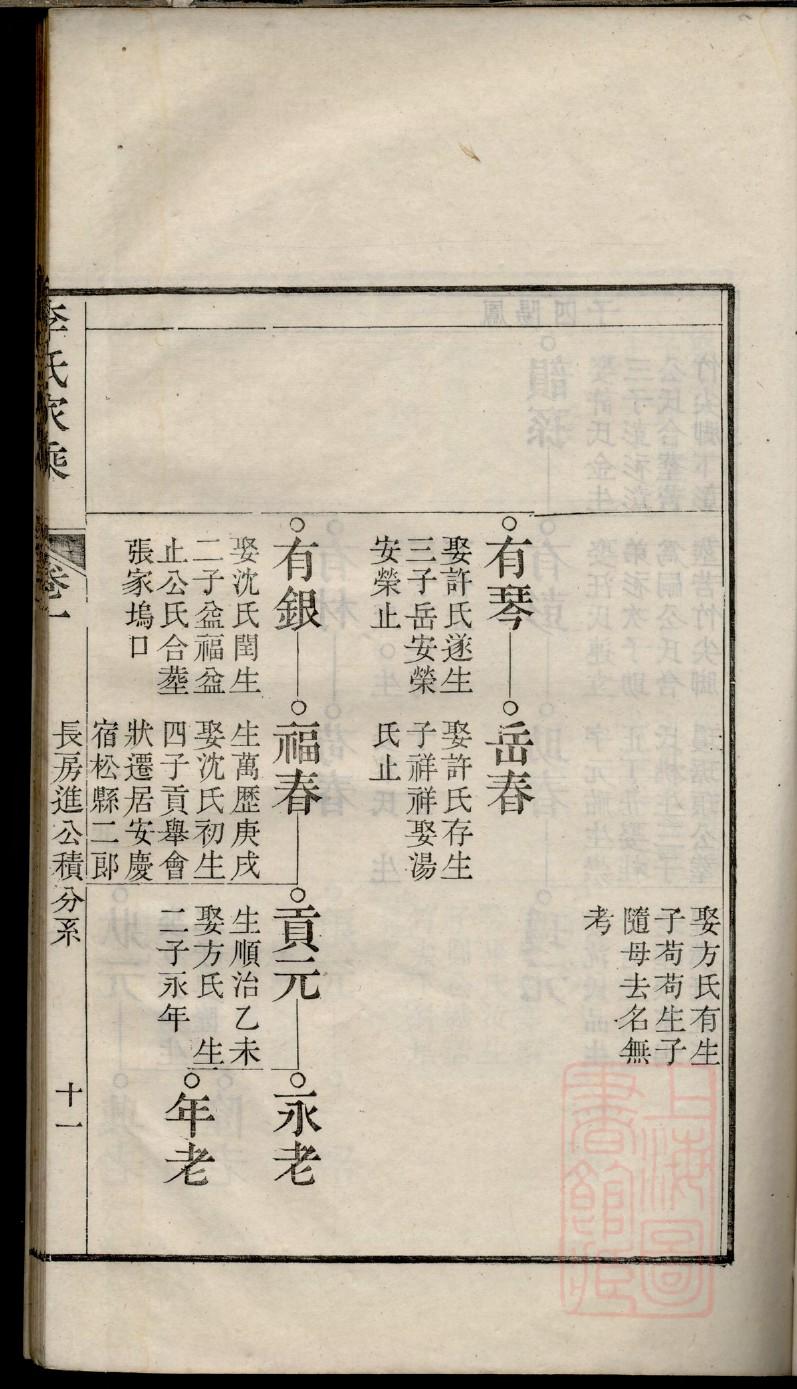 娶方氏有生
子苟苟生子
隨母去名無
考
有琴
娶許氏遂生
三子岳安榮
安榮止
岳春
娶許氏存生
子祥祥娶湯
氏止
有銀
娶沈氏閏生
二子益福益
止公氏合塟
張家塢口
福春
生萬歷庚戌
娶沈氏初生
四子貢舉會
狀遷居安慶
宿松縣二郎
貢元
生順治乙未
娶方氏 生
二子永年
永老
年老
李氏家乘
卷一
長房進公積分系
十一
上海圖
書館藏